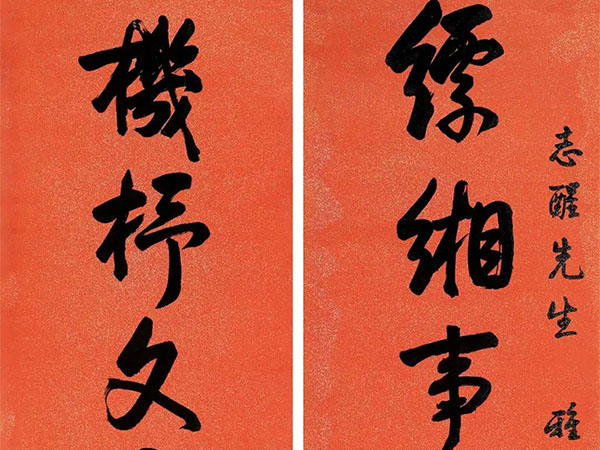 志醒先生 雅
縹緗事
機杼文